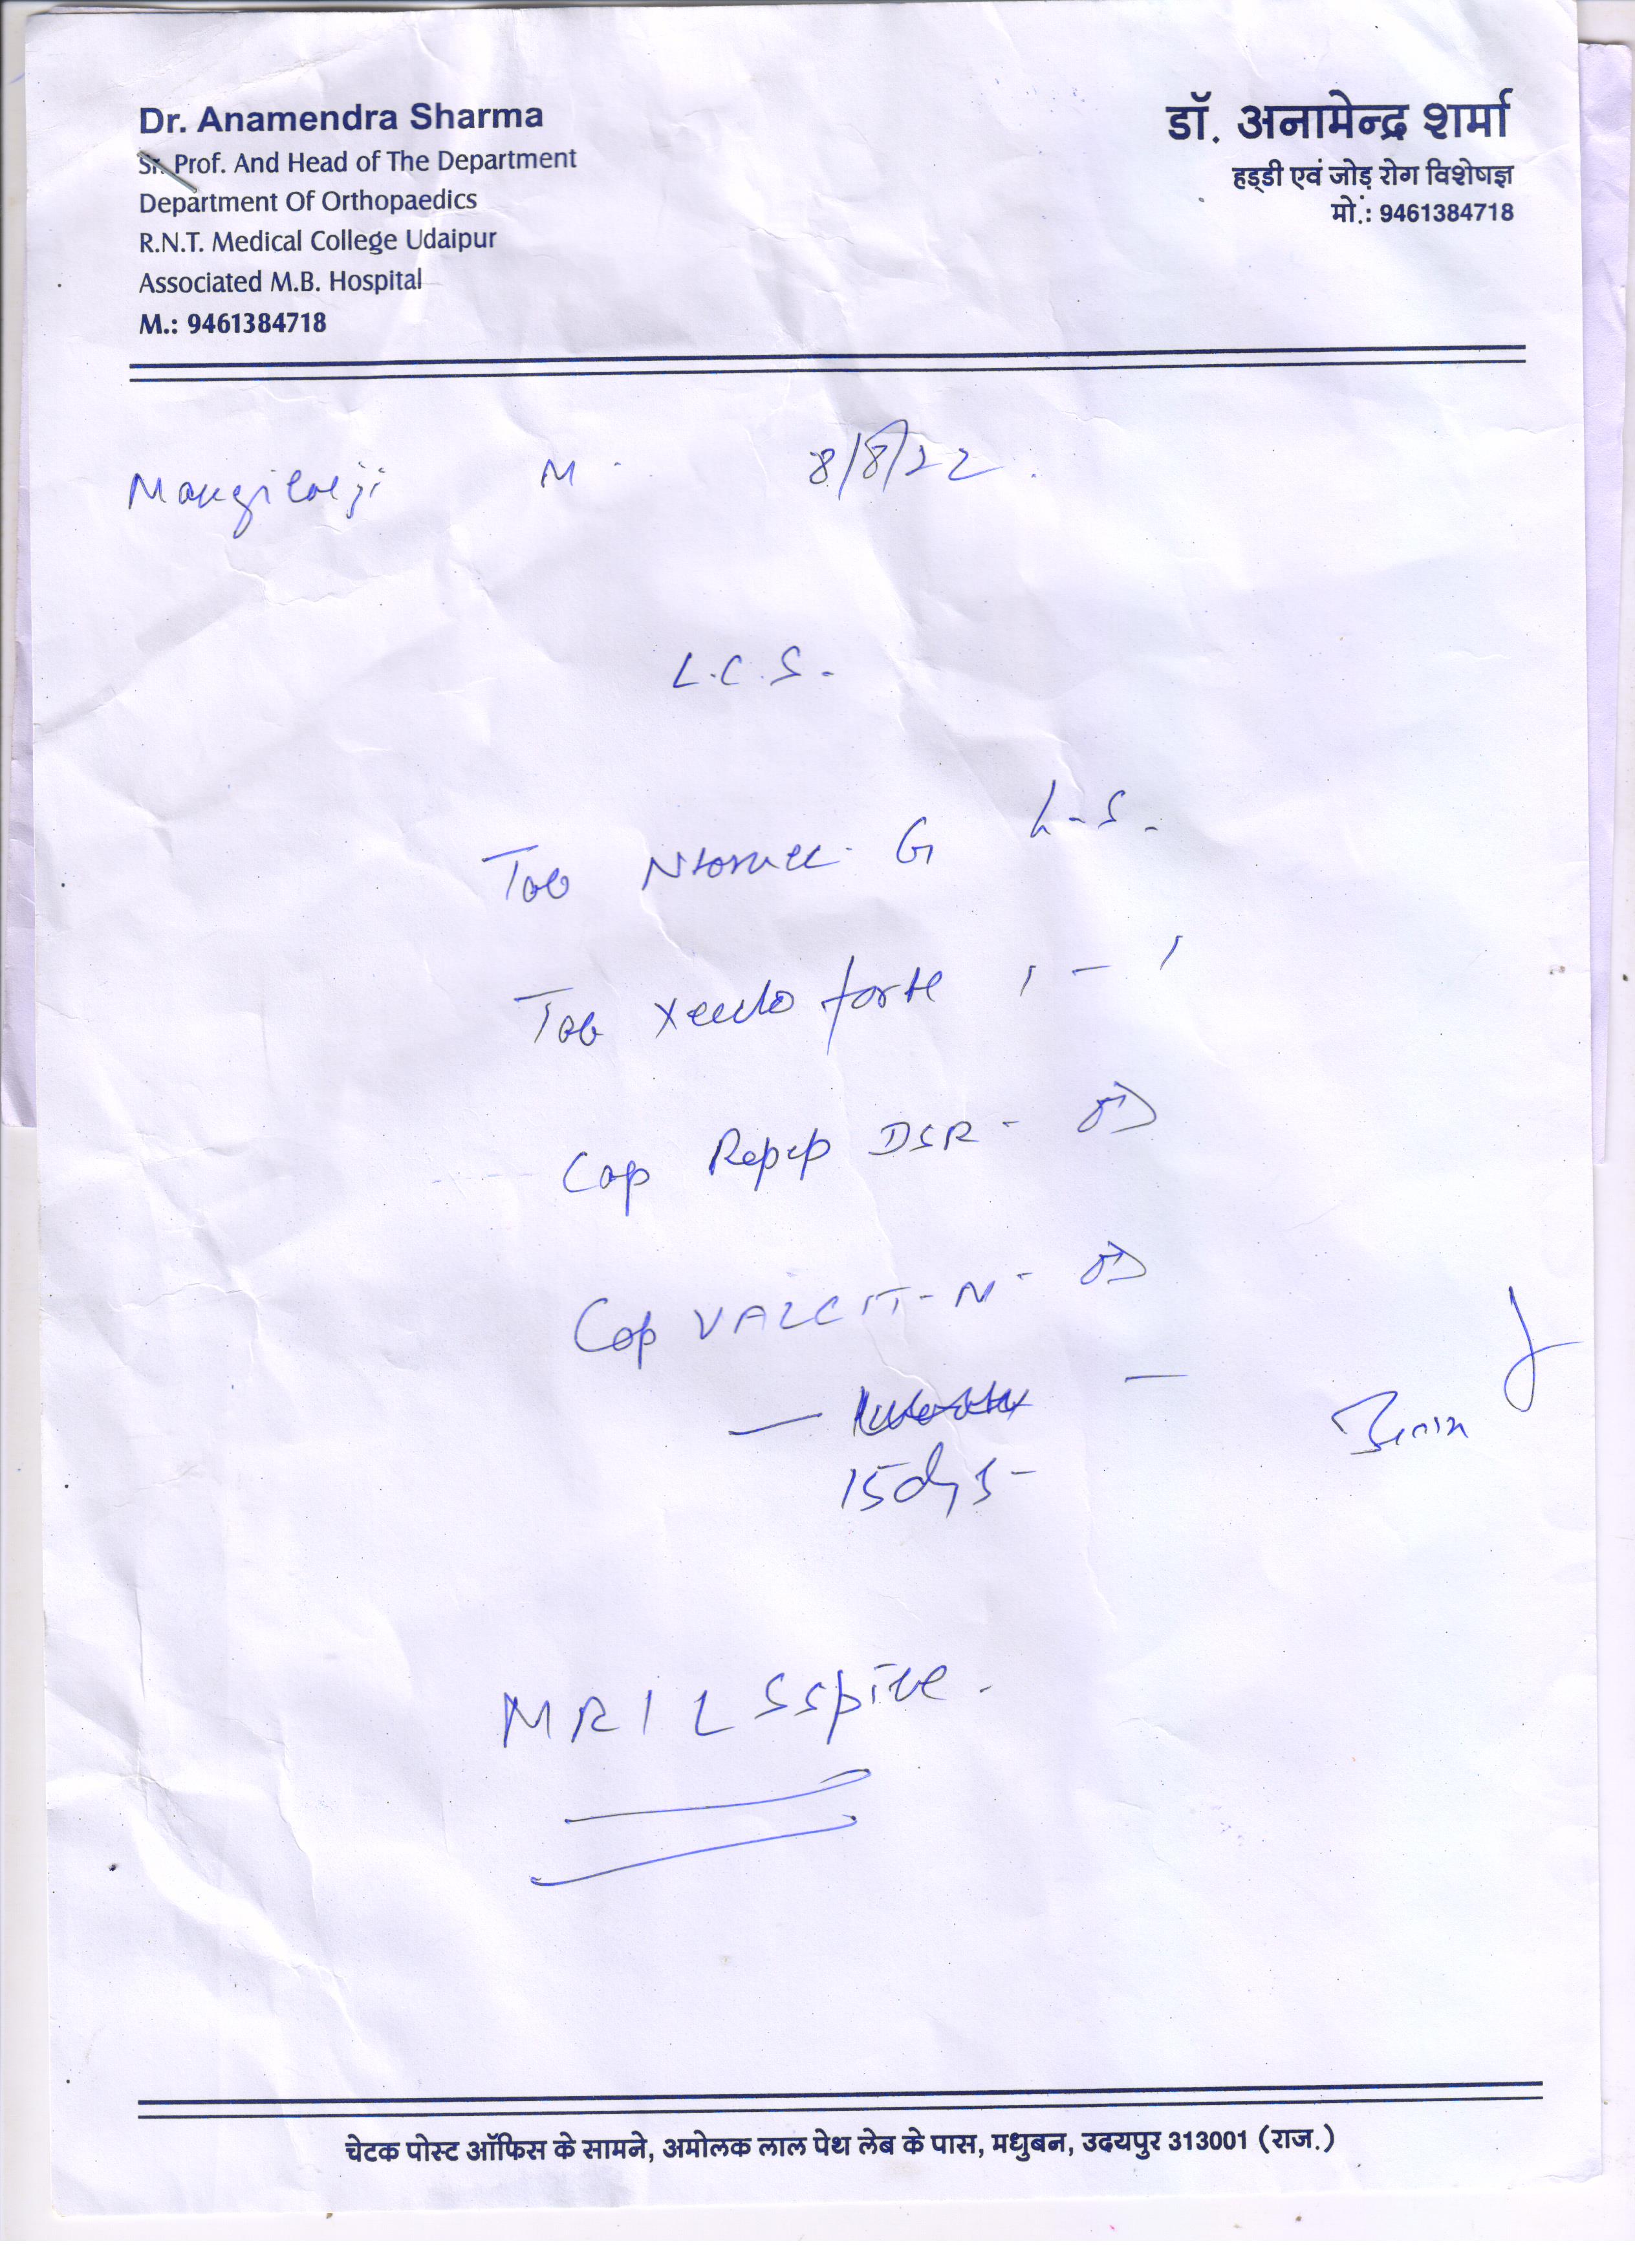 Dr. Anamendra Sharma
Sr. Prof. And Head of The Department
Department Of Orthopaedics
R.N.T. Medical College Udaipur
Associated M.B. Hospital
M.: 9461384718
डॉ. अनामेन्द्र शर्मा
हड्डी एवं जोड़ रोग विशेषज्ञ
मो.: 9461384718
Mangilalji M 8/8/22
L.C.S.
Tab G
Tab forte 1 - 1
Cap DSR - OD
Cap - N - OD
15 days -
MRI L S spine.
चेटक पोस्ट ऑफिस के सामने, अमोलक लाल पेथ लेब के पास, मधुबन, उदयपुर 313001 (राज.)